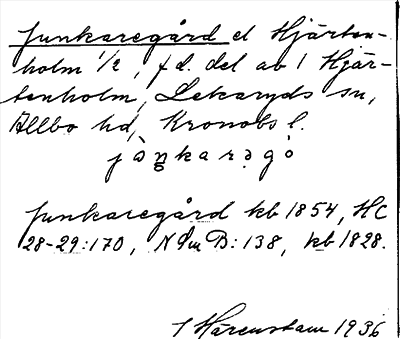 Junkaregård el Hjärten-
holm 1/2, f d. del av 1 Hjär-
tenholm, Lekaryds sn,
Allbo hd, Kronobs l.
Junkaregård kb 1854, HC
28-29:170, N Sm B: 138, kb 1828.
J Härenstam 1936